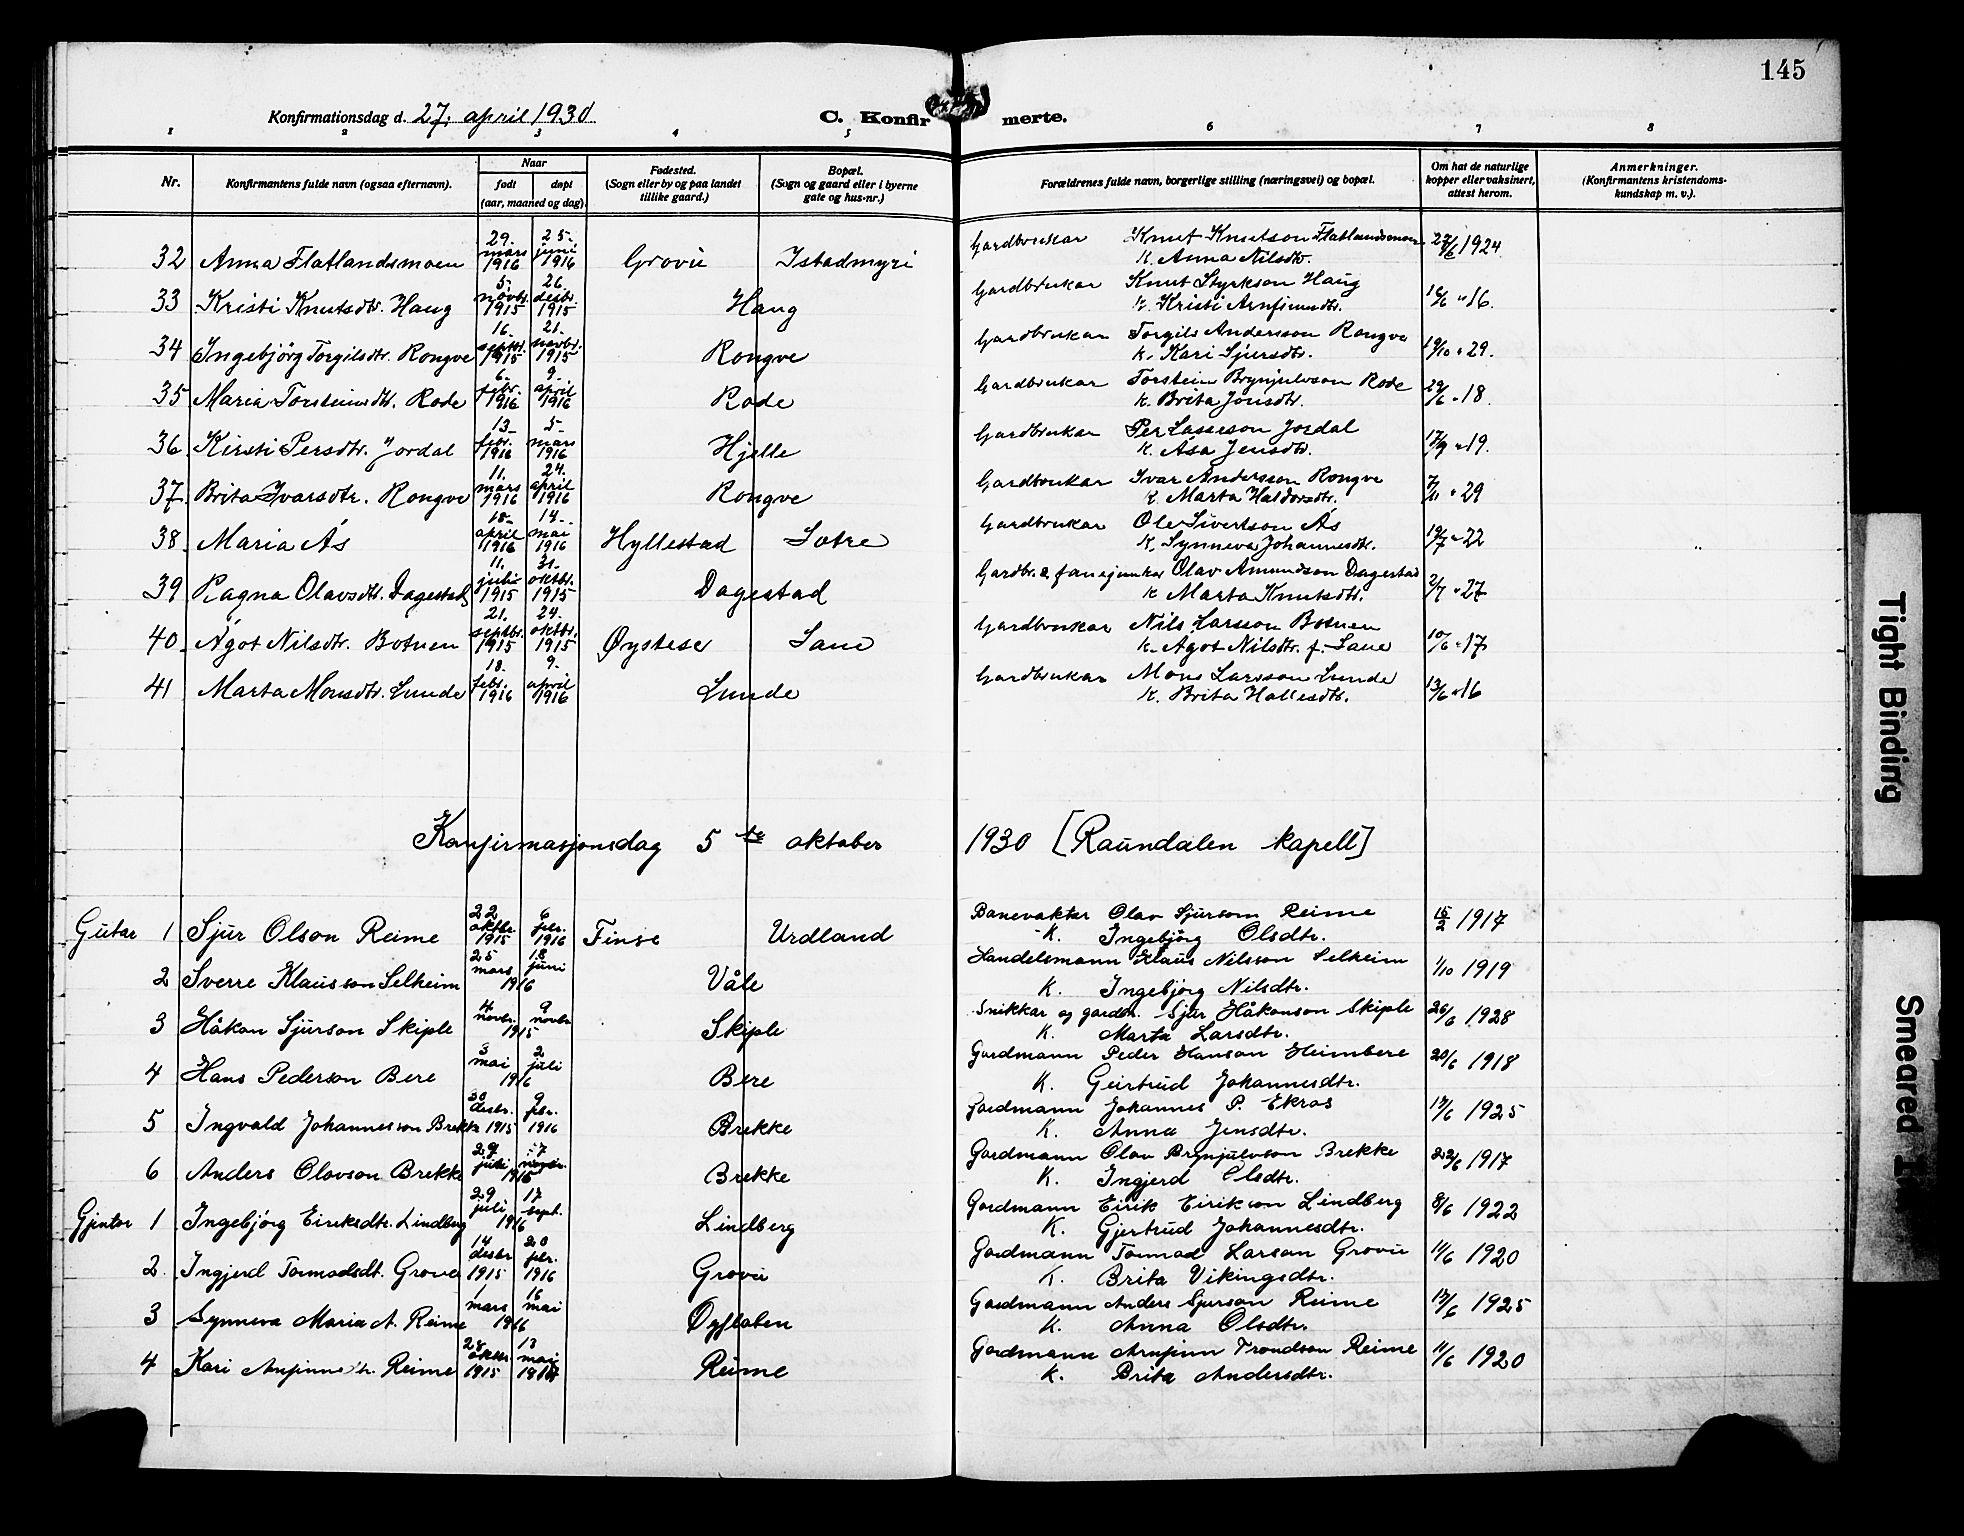 145
Konfirmationsdag d. 27. april 1930
C. Konfirmerte.
1 2 3 4 5 6 7 8
Nr.
Konfirmantens fulde navn (ogsaa efternavn).
Naar
født
døpt
(aar, maaned og dag).
Fødested.
(Sogn eller by og paa landet
tillike gaard.)
Bopæl.
(Sogn og gaard eller i byerne
gate og hus-nr.)
Forældrenes fulde navn, borgerlige stilling (næringsvei) og bopæl.
Om hat de naturlige
kopper eller vaksinert,
attest herom.
Anmerkninger.
(Konfirmantens kristendoms-
kundskap m. v.).
32 Anna Flatlandsmoen 29. mars 1916 25. juni 1916 Grovu Istadmyri Gardbrukar Knut Knutson Flatlandsmoen 27/6 1924.
K. Anna Nilsdtr.
33 Kristi Knutsdtr. Haug 5. novbr. 1915 26. desbr. 1915 Haug Gardbrukar Knut Styrkson Haug 16/6 " 16.
K. Kristi Arnfinnsdtr.
34 Ingebjörg Torgilsdtr. Rongve 16. septbr. 1915 21. novbr. 1915 Rongve Gardbrukar Torgils Andersson Rongve 19/10 " 29.
K. Kari Sjursdtr.
35 Maria Torsteinsdtr. Rode 6. febr. 1916 9. april 1916 Rode Gardbrukar Torstein Brynjulvson Rode 29/6 " 18.
K. Brita Jonsdtr.
36 Kirsti Persdtr. Jordal 13. febr. 1916 5. mars 1916 Hjelle Gardbrukar Per Lasseson Jordal 17/9 " 19.
K. Åsa Jensdtr.
37 Brita Ivarsdtr. Rongve 11. mars 1916 24. april 1916 Rongve Gardbrukar Ivar Andersson Rongve 7/11 " 29
K. Marta Haldorsdtr.
38 Maria Ås 18. april 1916 14. mai 1916 Hyllestad Sætre Gardbrukar Ole Sivertson Ås 19/7 " 22
K. Synneva Johannesdtr.
39 Ragna Olavsdtr. Dagestad 11. juli 1915 31. oktbr. 1915 Dagestad Gardbr. & fanejunker Olav Amundson Dagestad 2/7 " 27
K Marta Knutsdtr.
40 Ågot Nilsdtr. Botnen 21. septbr. 1915 24. oktbr. 1915 Øystese Saue Gardbrukar Nils Larsson Botnen 10/6 " 17
K. Agot Nilsdtr. f. Saue
41 Marta Monsdtr. Lunde 18. febr. 1916 9. april 1916 Lunde Gardbrukar Mons Larsson Lunde 13/6 " 16
K. Brita Hallesdtr.
Konfirmasjonsdag 5te oktober 1930 [Raundalen kapell]
Gutar 1 Sjur Olson Reime 22 oktbr. 1915 6 febr. 1916 Finse Urdland Banevakter Olav Sjursom Reime 15/2 1917
K. Ingebjörg Olsdtr.
2 Sverre Klausson Selheim 25 mars 18 juni 1916 Våle Handelsmann Klaus Nilsson Selheim 1/10 1919
K. Ingebjörg Nilsdtr.
3 Håkon Sjurson Skiple 4 novbr. 9 novbr 1915 Skiple Snikkar og gardm. Sjur Håkonson Skiple 26/6 1928
K. Marta Larsdtr.
4 Hans Pederson Bere 3 mai 2 juli 1916 Bere Gardmann Peder Hanson Heimbere 20/6 1918
K. Geirtrud Johannesdtr.
5 Ingvald Johannesson Brekke 30 desbr. 1915 9 febr. 1916 Brekke Gardmann Johannes P. Ekras 17/6 1925
K. Anna Jensdtr.
6 Anders Olavson Brekke 29 juli 7 novbr. 1915 Brekke Gardmann Olav Brynjulvson Brekke 22/6 1917
K. Ingjerd Olsdtr.
Gjentor 1 Ingebjörg Eiriksdtr. Lindberg 29 juli 17 sept. 1916 Lindberg Gardmann Eirik Eirikson Lindberg 8/6 1922
K. Gjertrud Johannesdtr.
2. Ingjerd Tormodsdt. Grove 14 desbr 1915 20 febr. 1916 Grovu Gardmann Tormod Larson Grovu 11/6 1920
K. Brita Vikingsdtr.
3 Synneva Maria A. Reime 1 mars 16 mai 1916 Øyflaten Gardmann Anders Sjurson Reime 17/6 1925
K. Anna Olsdtr.
4 Kari Anfinnsdtr. Reime 28 oktbr. 1915 13 mai 1916 Reime Gardmann Anfinn Trondson Reime 11/6 1920
K. Brita Andersdtr.
Tight Binding
Smeared